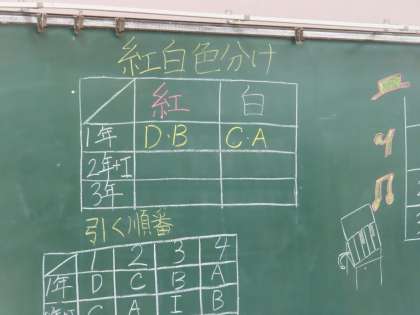 紅白色分け
紅 白
1年 D・B C・A
2年+I
3年
引く順番
1 2 3 4
1年 D C B A
C A I B